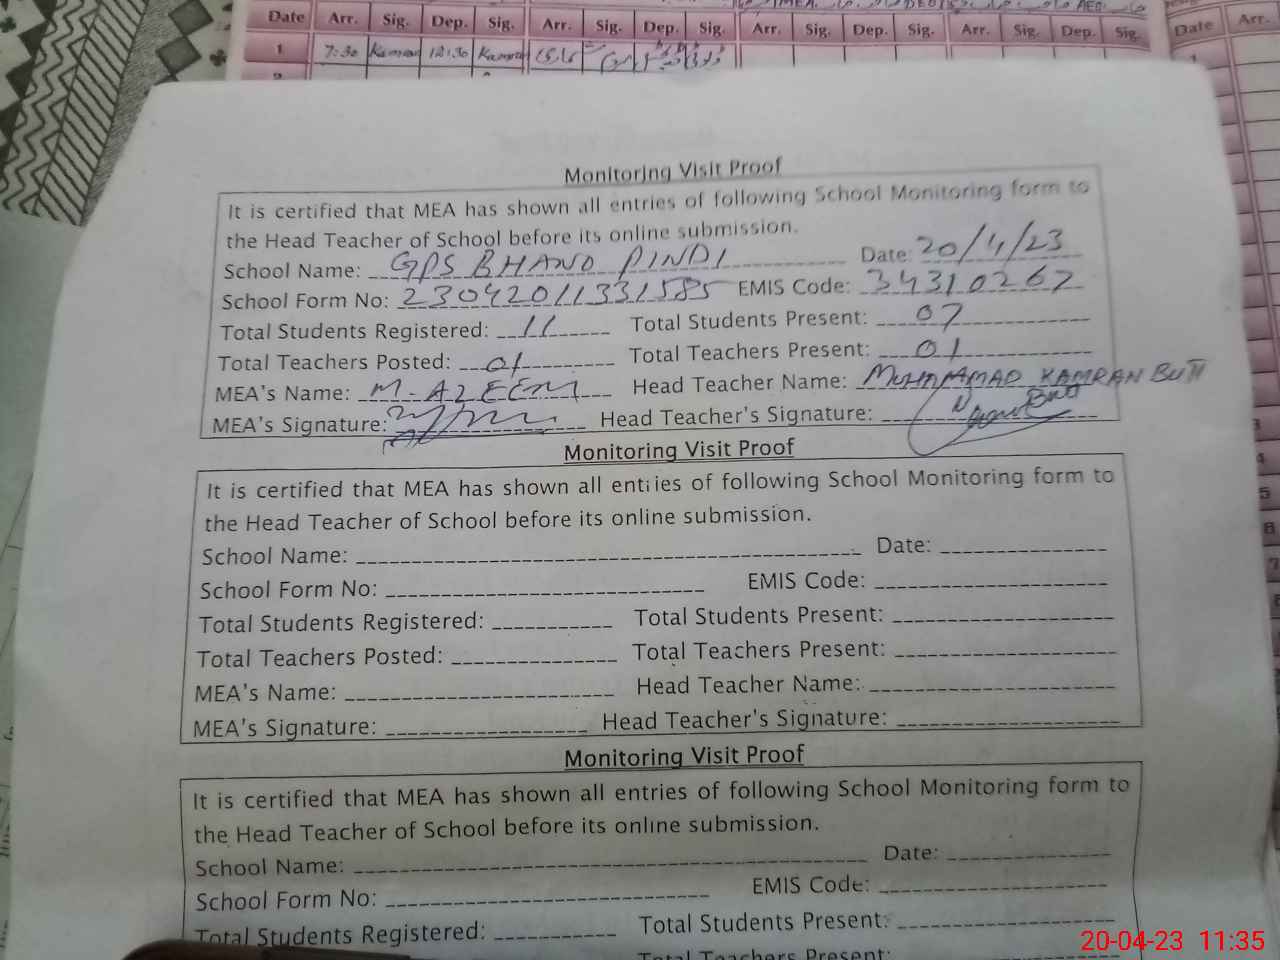 Date Arr. Sig. Dep. Sig. Arr. Sig. Dep. Sig. Arr. Sig. Dep. Sig. Arr. Sig. Dep. Sig. Date Arr.
1 7:30 Kamran 12:30 Kamran
Monitoring Visit Proof
It is certified that MEA has shown all entries of following School Monitoring form to
the Head Teacher of School before its online submission.
School Name: GPS BHAND PINDI Date: 20/4/23
School Form No: 23042011331585 EMIS Code: 34310267
Total Students Registered: 11 Total Students Present: 07
Total Teachers Posted: 01 Total Teachers Present: 01
MEA's Name: M-AZEEM Head Teacher Name: MUHAMMAD KAMRAN BUTT
MEA's Signature: Head Teacher's Signature:
Monitoring Visit Proof
It is certified that MEA has shown all entries of following School Monitoring form to
the Head Teacher of School before its online submission.
School Name: Date:
School Form No: EMIS Code:
Total Students Registered: Total Students Present:
Total Teachers Posted: Total Teachers Present:
MEA's Name: Head Teacher Name:
MEA's Signature: Head Teacher's Signature:
Monitoring Visit Proof
It is certified that MEA has shown all entries of following School Monitoring form to
the Head Teacher of School before its online submission.
School Name: Date:
School Form No: EMIS Code:
Total Students Registered: Total Students Present:
Total Teachers Present:
20-04-23 11:35